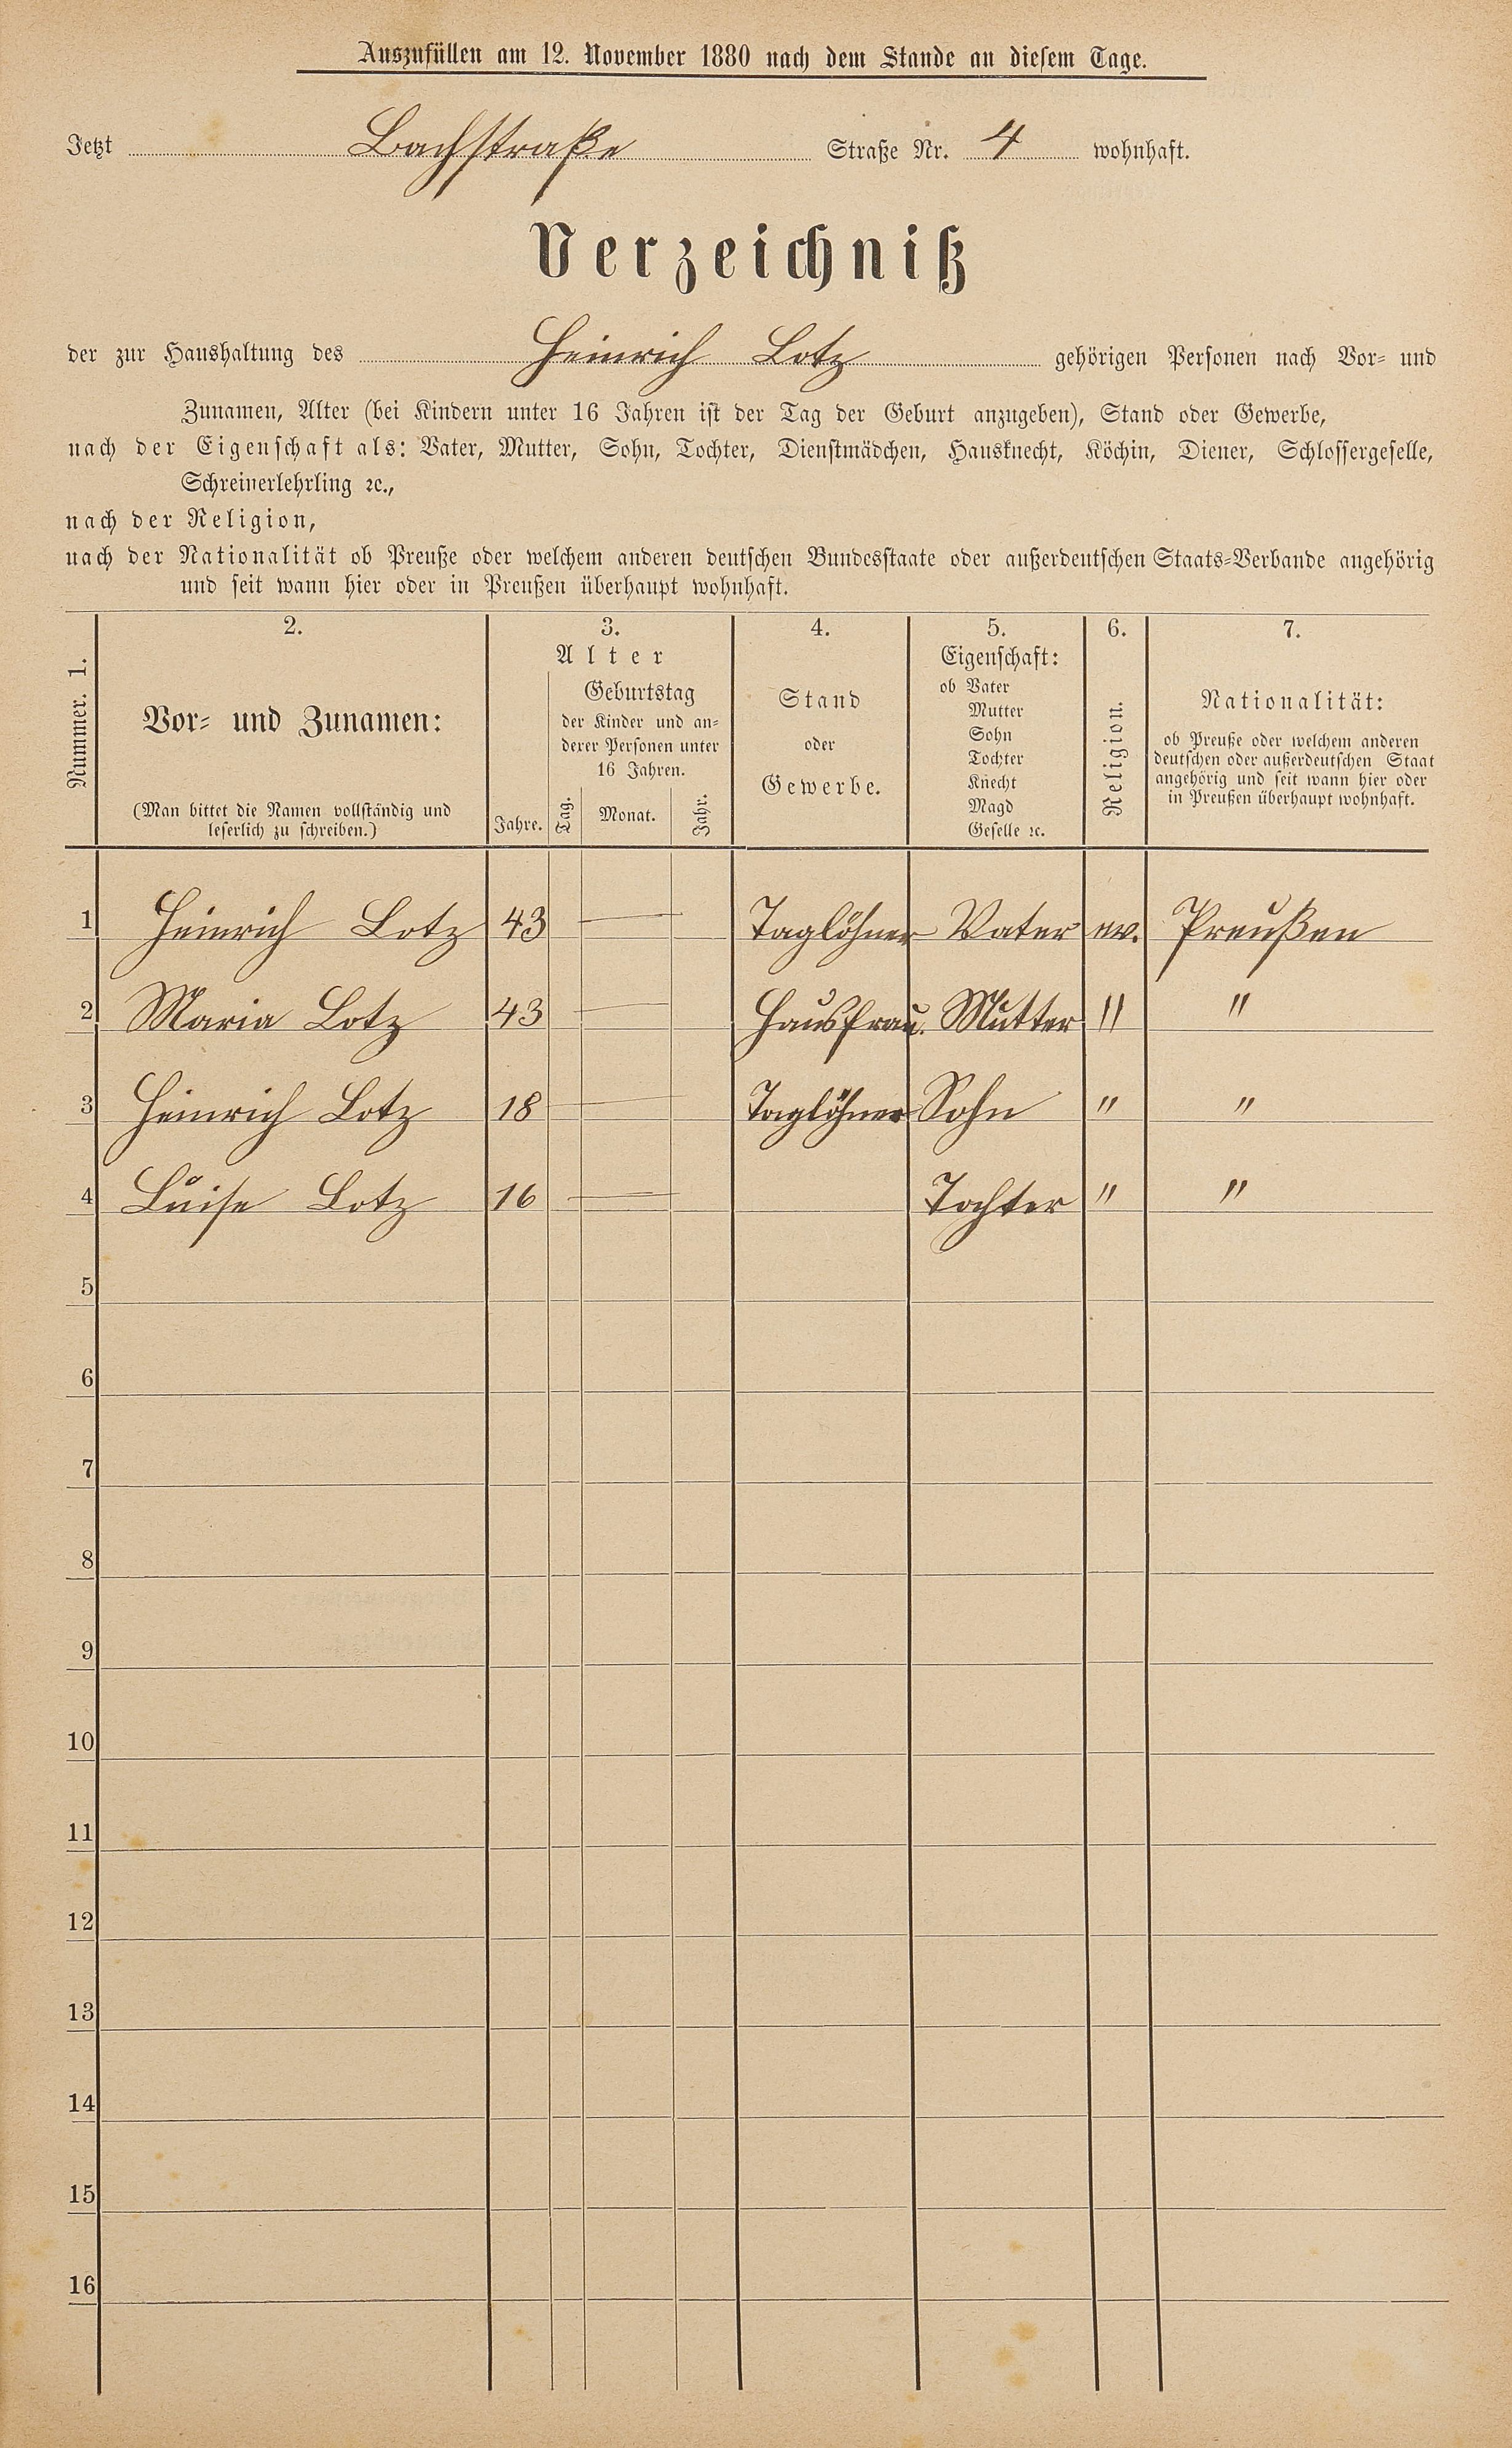 Auszufüllen am 12. November 1880 nach dem Stande an diesem Tage.
Jetzt Bachstraße Straße Nr. 4 wohnhaft.
Verzeichniß
der zur Haushaltung des Heinrich Lotz gehörigen Personen nach Vor- und
Zunamen, Alter (bei Kindern unter 16 Jahren ist der Tag der Geburt anzugeben), Stand oder Gewerbe,
nach der Eigenschaft als: Vater, Mutter, Sohn, Tochter, Dienstmädchen, Hausknecht, Köchin, Diener, Schlossergeselle,
Schreinerlehrling ꝛc.,
nach der Religion,
nach der Nationalität ob Preuße oder welchem anderen deutschen Bundesstaate oder außerdeutschen Staats-Verbande angehörig
und seit wann hier oder in Preußen überhaupt wohnhaft.
Nummer. 1.
2.
Vor- und Zunamen:
(Man bittet die Namen vollständig und
leserlich zu schreiben.)
3.
Alter
Jahre.
Geburtstag
der Kinder und an-
derer Personen unter
16 Jahren.
Tag. Monat. Jahr.
4.
Stand
oder
Gewerbe.
5.
Eigenschaft:
ob Vater
Mutter
Sohn
Tochter
Knecht
Magd
Geselle ꝛc.
6.
Religion.
7.
Nationalität:
ob Preuße oder welchem anderen
deutschen oder außerdeutschen Staat
angehörig und seit wann hier oder
in Preußen überhaupt wohnhaft.
1 Heinrich Lotz 43 — Taglöhner Vater ev. Preußen
2 Maria Lotz 43 — Hausfrau. Mutter " "
3 Heinrich Lotz 18 — Taglöhner Sohn " "
4 Luise Lotz 16 — Tochter " "
5
6
7
8
9
10
11
12
13
14
15
16